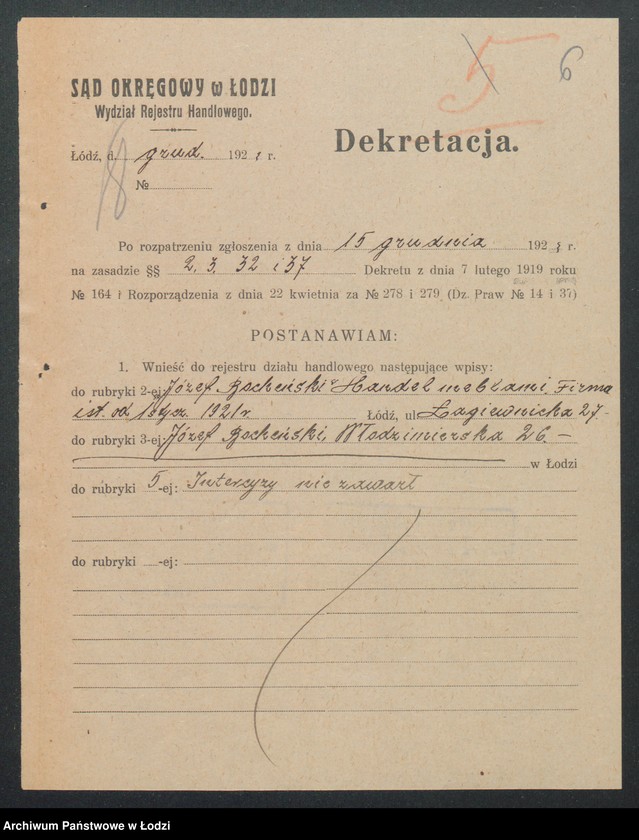 5 6
SĄD OKRĘGOWY w ŁODZI
Wydział Rejestru Handlowego.
Dekretacja.
Łódź, d. grud. 1921 r.
№
Po rozpatrzeniu zgłoszenia z dnia 15 grudnia 1921 r.
na zasadzie §§ 2. 3. 32 i 37 Dekretu z dnia 7 lutego 1919 roku
№ 164 i Rozporządzenia z dnia 22 kwietnia za № 278 i 279 (Dz. Praw № 14 i 37)
POSTANAWIAM:
1. Wnieść do rejestru działu handlowego następujące wpisy:
do rubryki 2-ej: „Józef Bocheński” Handel meblami. Firma
ist. od 1 stycz. 1921 r. Łódź, ul. Łagiewnicka 27.–
do rubryki 3-ej: Józef Bocheński, Włodzimierska 26.–
w Łodzi
do rubryki 5-ej: Intercyzy nie zawarł
do rubryki -ej:
Archiwum Państwowe w Łodzi